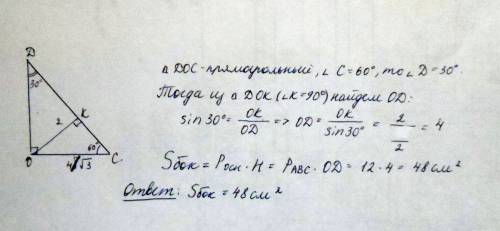 D
30°
2
K
60°
O
4√3
C
△ DOC-прямоугольный, ∠ C=60°, то ∠ D=30°.
Тогда из △ DOK (∠K=90°) найдем OD:
sin 30° = OK/OD => OD = OK/sin30° = 2/(1/2) = 4
Sбок = Pосн · H = PABC · OD = 12·4 = 48 см²
Ответ: Sбок = 48 см²